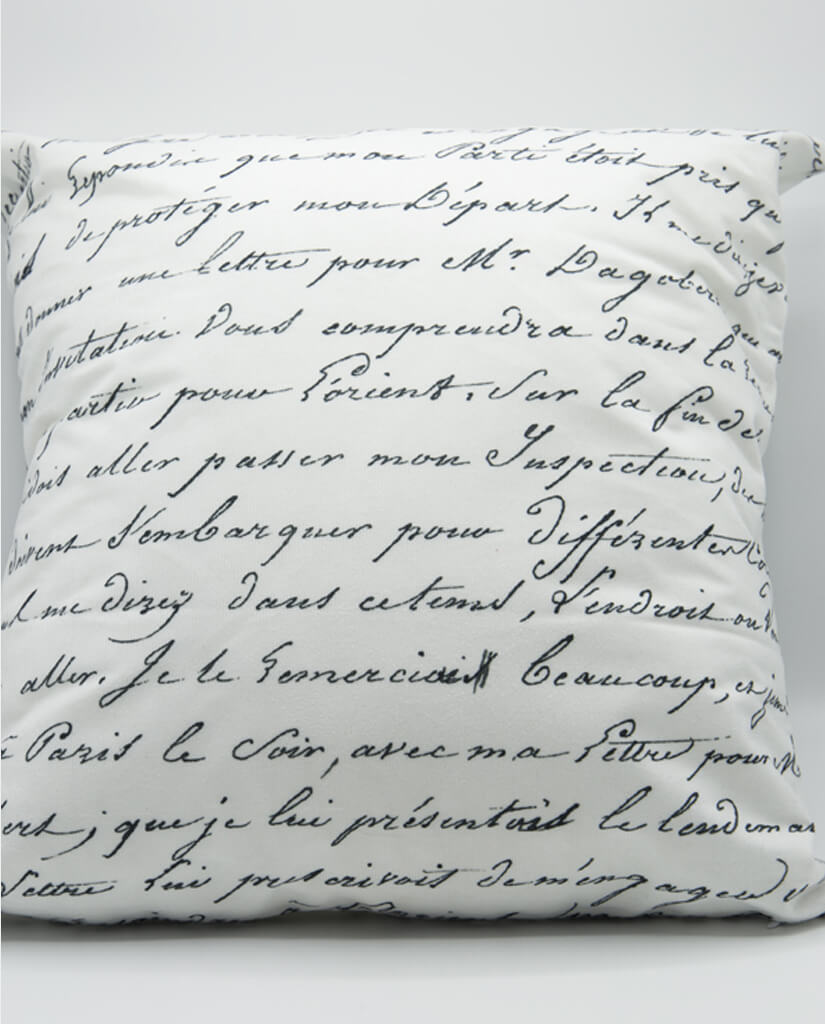 Repondre que mon Parti étoit pris
de protéger mon Départ. Il me
donner une lettre pour Mr. Dagober
Invitation. Vous comprendra dans la
partir pour L'orient. Sur la fin de
dois aller passer mon Inspection,
doivent s'embarquer pour différentes
me direz dans cetems, l'endroit ou
aller. Je le remerciai beaucoup, et
à Paris le Soir, avec ma Lettre pour M
bert; que je lui présentois le lendemai
Lettre lui prescrivoit de m'engager